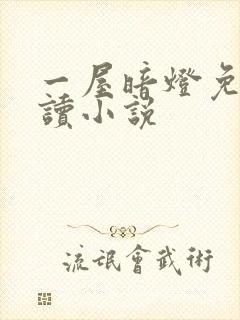 一屋暗燈免
讀小說
流氓會武術